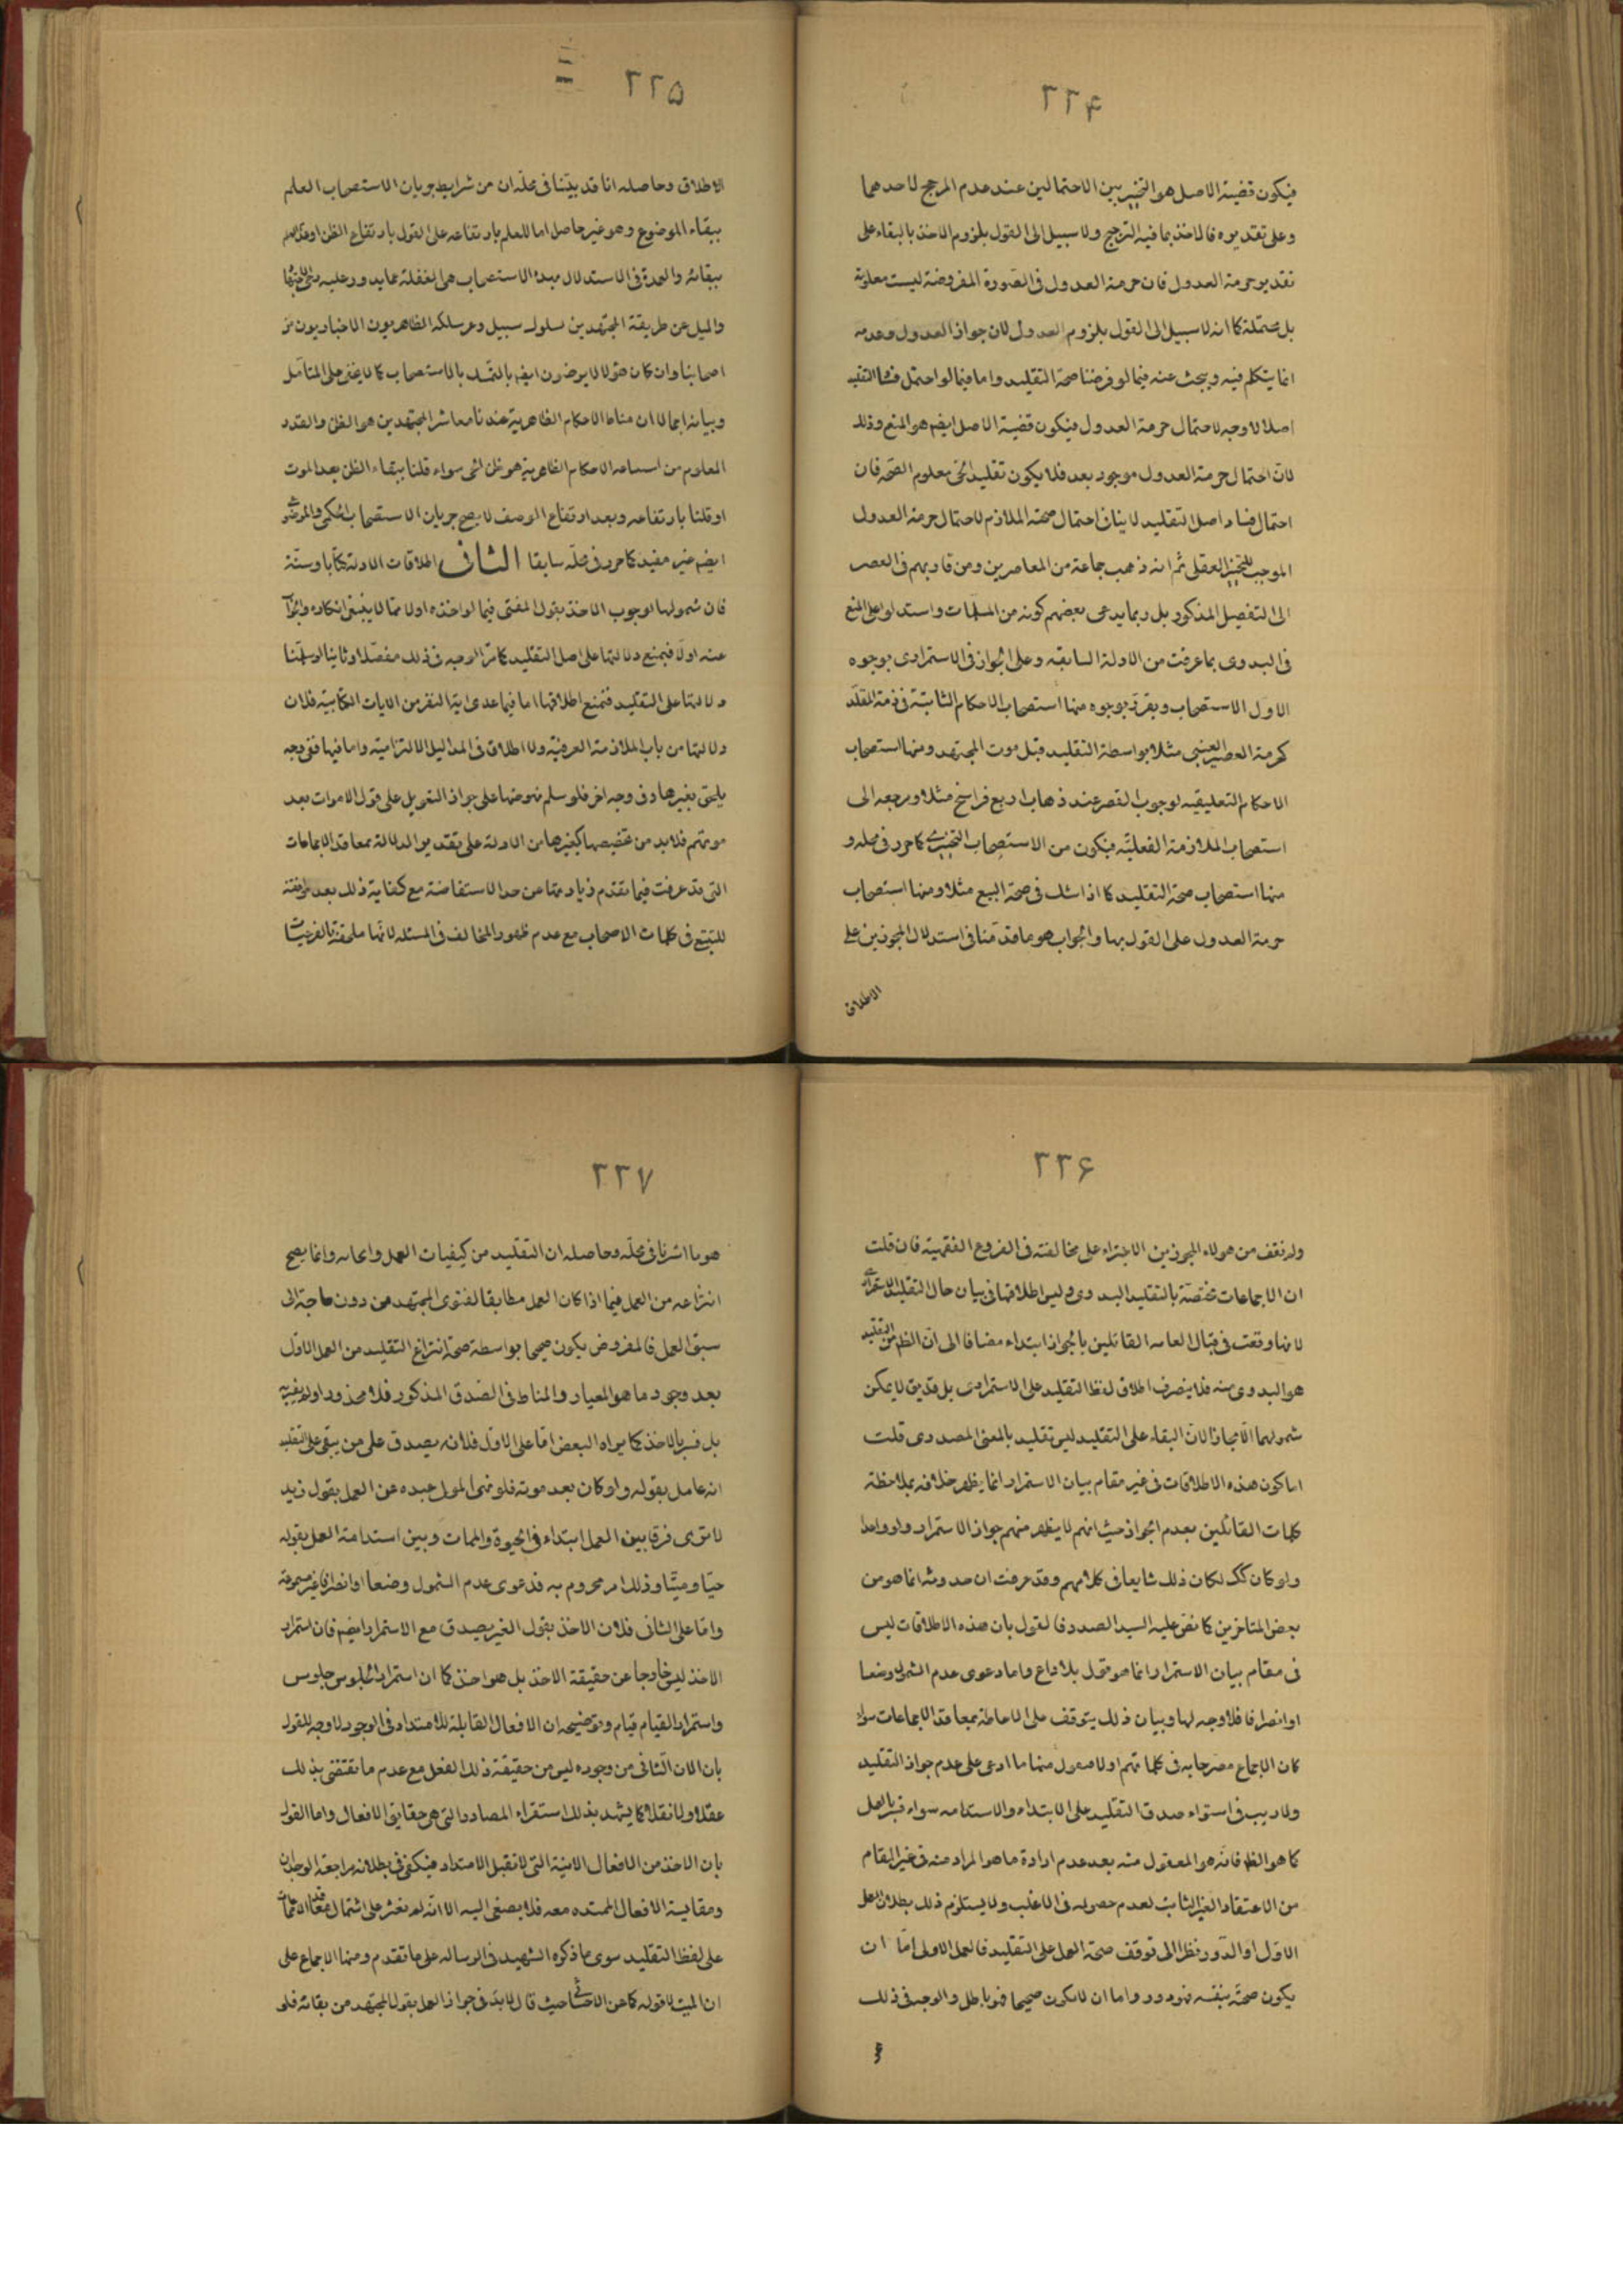 ٢٢۴
فيكون قضية الاصل هو التخيير بين الاحتمالين عند عدم المرجح لاحدهما
وعلى تقديره فالاخذ بما فيه الترجيح ولا سبيل الى القول بلزوم الاخذ بالبقاء على
تقدير حرمة العدول فان حرمة العدول فى الصورة المفروضة ليست معلومة
بل محتملة كما انه لا سبيل الى القول بلزوم العدول لان جواز العدول وعدمه
انما يتكلم فيه ويبحث عنه فيما لو فرضنا صحة التقليد واما فيما لو احتمل فساد التقليد
اصلا لا وجه لاحتمال حرمة العدول فيكون قضية الاصل ايضم هو المنع وذلك
لان احتمال حرمة العدول موجود بعد فلا يكون تقليد الحى معلوم الصحة فان
احتمال فساد اصل التقليد لا ينافى احتمال صحته الملازم لاحتمال حرمة العدول
الموجب للتخيير العقلى ثم انه ذهب جماعة من المعاصرين ومن قاربهم فى العصر
الى التفصيل المذكور بل ربما يدعى بعضهم كونه من المسلمات واستدلوا على المنع
فى البدوى بما عرفت من الادلة السابقه وعلى الجواز فى الاستمرارى بوجوه
الاول الاستصحاب ويقرر بوجوه منها استصحاب الاحكام الثابتة فى ذمة المقلد
كحرمة العصير العنبى مثلا بواسطة التقليد قبل موت المجتهد ومنها استصحاب
الاحكام التعليقيه لوجوب القصر عند ذهاب اربع فراسخ مثلا ومرجعه الى
استصحاب الملازمة الفعليّه فيكون من الاستصحاب التنجيزى كما حرر فى محله و
منها استصحاب صحة التقليد كما اذا شك فى صحة البيع مثلا ومنها استصحاب
حرمة العدول على القول بها والجواب هو ما قدّمنا فى استدلال المجوزين على
الاطلاق
٢٢۵
الاطلاق وحاصله انا قد بيّنا فى محلّه ان من شرايط جريان الاستصحاب العلم
ببقاء الموضوع وهو غير حاصل اما للعلم بارتفاعه على القول بارتفاع الظن او عدم العلم
ببقائه والعمدة فى الاستدلال بهذا الاستصحاب هى الغفلة عما يدور عليه رحى الاجتهاد
والميل عن طريقة المجتهدين لسلوك سبيل وعر سلكه الظاهريون الاخباريون من
اصحابنا وان كان هؤلاء لا يرضون ايضم بالتمسّك بالاستصحاب كما لا يخفى على المتامل
وبيانه اجمالا ان مناط الاحكام الظاهرية عندنا معاشر المجتهدين هو الظن والقدر
المعلوم من الاحكام الظاهرية هو ظن الحى سواء قلنا ببقاء الظن بعد الموت
او قلنا بارتفاعه وبعد ارتفاع الوصف لا يصح جريان الاستصحاب الحكمى والموضوعى
ايضم غير مفيد كما حرر فى محلّه سابقا الثانى اطلاقات الادلة كتابا وسنّة
فان شمولها لوجوب الاخذ بقول المفتى فيما لو اخذه اولا مما لا ينبغى انكاره والجواب
عنه اولا فبمنع دلالتها على اصل التقليد كما مرّ الوجه فى ذلك مفصّلا وثانيا لو سلّمنا
دلالتها على التقليد فنمنع اطلاقها اما فيما عدى اية النفر من الايات الكتابيّة فلان
دلالتها من باب الملازمة العرفيّة ولا اطلاق فى المداليل الالتزاميّة واما فيها ففى وجه
يلحق بغيرها وفى وجه اخر فلو سلم نهوضها على جواز التعويل على قول الاموات بعد
موتهم فلابد من تخصيصها كغيرها من الادلة على تقدير الدلالة بمعاقد الاجماعات
التى قد عرفت فيما تقدم زيادتها عن حد الاستفاضة مع كفاية ذلك بعد موافقته
للتتبع فى كلمات الاصحاب مع عدم ظهور المخالف فى المسئله لانها ملحقة بالفرعيات
٢٢۶
ولم نقف من هولاء المجوزين الاجتراء على مخالفته فى الفروع الفقهية فان قلت
ان الاجماعات مختصّة بالتقليد البدوى وليس اطلاقها فى بيان حال التقليد الاستمرارى
لانها وقعت فى قبال العامه القائلين بالجواز ابتداء مضافا الى ان الظم من التقليد
هو البدوى منه فلا ينصرف اطلاق لفظ التقليد على الاستمرارى بل قد يق لا يمكن
شمولهما الا مجازا لان البقاء على التقليد ليس تقليد بالمعنى المصدرى قلت
اما كون هذه الاطلاقات فى غير مقام بيان الاستمرار انما يظهر خلافه بملاحظة
كلمات القائلين بعدم الجواز حيث انهم لا يظهر منهم جواز الاستمرار ولو واحدا
ولو كان كك لكان ذلك شايعا فى كلامهم وقد عرفت ان حدوثه انما هو من
بعض المتاخرين كما نص عليه السيد الصدر فالقول بان هذه الاطلاقات ليس
فى مقام بيان الاستمرار انما هو قول بلا داع واما دعوى عدم الشمول وضعا
او انصرافا فلا وجه لها وبيان ذلك يتوقف على الاحاطة بمعاقد الاجماعات سواء
كان الاجماع مصرحا به فى كلماتهم او لا منها ما ادعى على عدم جواز التقليد
ولا ريب فى استواء صدق التقليد على الابتداء والاستدامه سواء فسّر بالعمل
كما هو الظ فانه هو المعقول منه بعد عدم ارادة ما هو المراد منه فى غير المقام
من الاعتقاد الغير الثابت لعدم حصوله فى الاغلب ولا يستلزم ذلك بطلان العمل
الاول او الدّور نظرا الى توقف صحة العمل على التقليد فالعمل الاولى امّا ان
يكون صحّة بنفسه فهو دور واما ان لا يكون صحيحا فهو باطل والوجه فى ذلك
٢٢٧
هو ما اشرنا فى محلّه وحاصله ان التقليد من كيفيات العمل وانحائه وانما يصح
انتزاعه من العمل فيما اذا كان العمل مطابقا لفتوى المجتهد من دون حاجة الى
سبق العمل فالمفروض يكون صحيحا بواسطة صحة انتزاع التقليد من العمل الاوّل
بعد وجود ما هو المعيار والمناط فى الصّدق المذكور فلا محذور او لم يفسّر به
بل فسّر بالاخذ كما يراه البعض امّا على الاوّل فلانه يصدق على من يبقى على التقليد
انه عامل بقوله ولو كان بعد موته فلو نهى المولى عبده عن العمل بقول زيد
لا ترى فرقا بين العمل ابتداء فى الحيوة والممات وبين استدامة العمل بقوله
حيّا وميّتا وذلك امر محروم به فدعوى عدم الشمول وضعا او انصرافا غير مسموعة
وامّا على الثانى فلان الاخذ بقول الغير يصدق مع الاستمرار ايضم فان استمرار
الاخذ ليس خارجا عن حقيقة الاخذ بل هو اخذ كما ان استمرار الجلوس جلوس
واستمرار القيام قيام وتوضيحه ان الافعال القابلة للامتداد فى الوجود لا وجه للقول
بان الان الثانى من وجوده ليس من حقيقة ذلك الفعل مع عدم ما يقتضى بذلك
عقلا ولا نقلا كما يشهد بذلك استقراء المصادر التى هى حقايق الافعال واما القول
بان الاخذ من الافعال الانية التى لا تقبل الامتداد فيكفى فى بطلانه مراجعة الوجدان
ومقايسة الافعال الممتده معه فلا يصغى اليه الا انّه لم نعثر على اشتمال معاقد الاجماعات
على لفظ التقليد سوى ما ذكره الشهيد فى الرساله على ما تقدم ومنها الاجماع على
ان الميت لا قول له كما عن الاحسائى حيث قال لابدّ فى جواز العمل بقول المجتهد من بقائه فلو